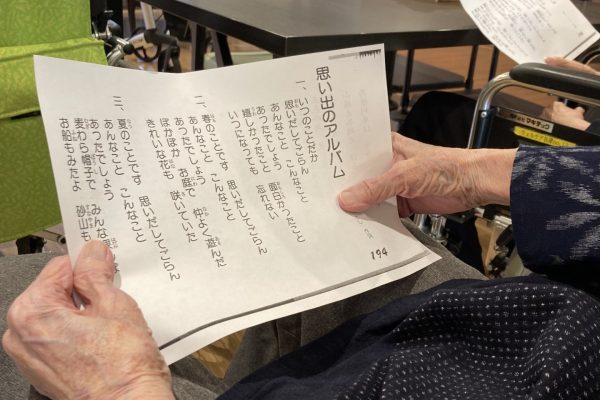 思い出のアルバム
一、いつのことだか
思いだしてごらん
あんなこと こんなこと
あったでしょう
嬉しかったこと 面白かったこと
いつになっても 忘れない
二、春のことです 思いだしてごらん
あんなこと こんなこと
あったでしょう
ぽかぽかお庭で 仲よく 遊んだ
きれいな花も 咲いていた
三、夏のことです 思いだしてごらん
あんなこと こんなこと
あったでしょう
麦わら帽子で みんな
お船もみたよ 砂山も
194